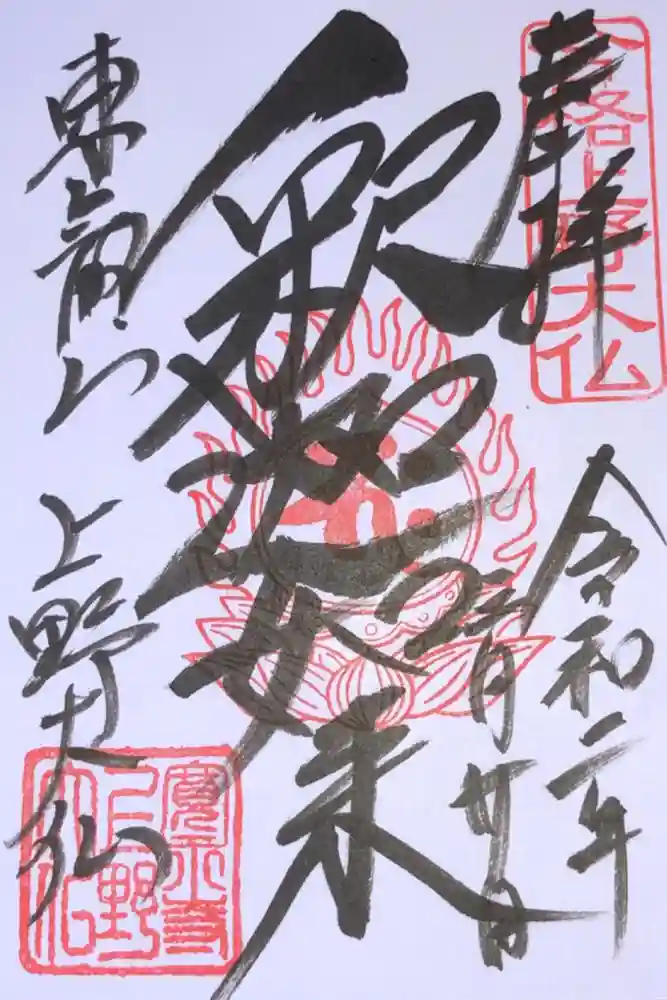 奉拝
合格上野大仏
令和二年
二月廿日
釈迦如来
東叡山
上野大仏
寛永寺
上野
大仏